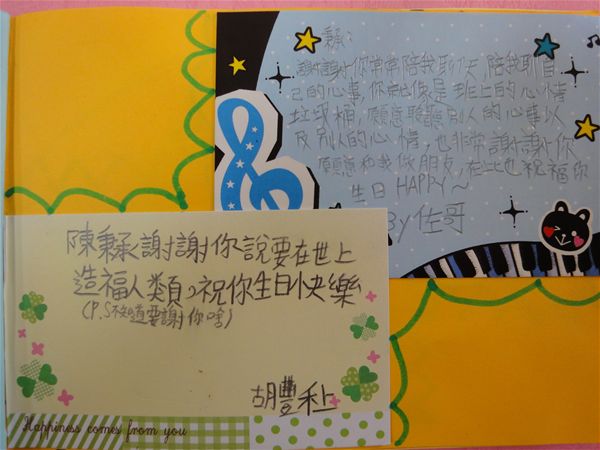 秉承:
謝謝你常常陪我聊天,陪我聊自
己的心事,你就像是班上的心情
垃圾桶,願意聆聽別人的心事以
及別人的心情,也非常謝謝你
願意和我做朋友,在此也祝福你
生日HAPPY~
By佐哥
陳秉承謝謝你說要在世上
造福人類,祝你生日快樂
(P.S不知道要謝你啥)
胡豐
Happiness comes from you